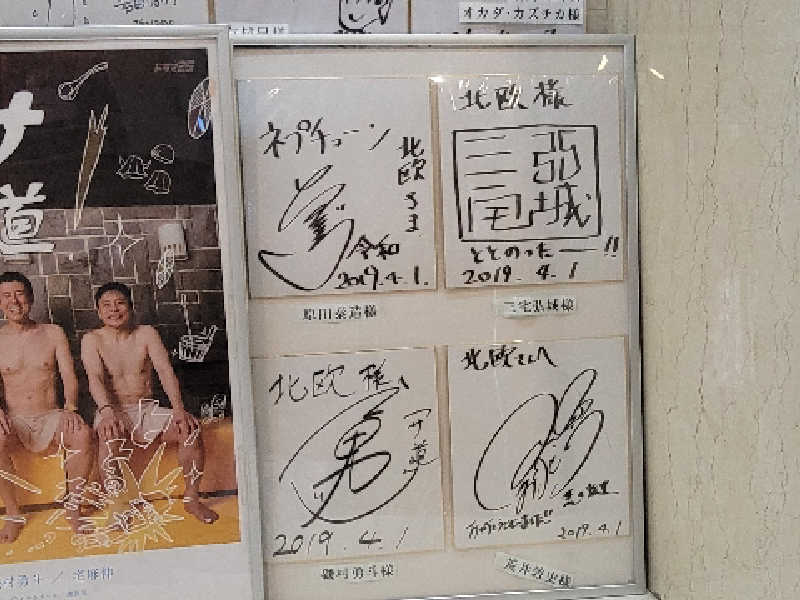 オカダ・カズチカ様
サ
道
ネプチューン
北欧さま
令和
2019.4.1.
原田泰造様
北欧様
三宅弘城
ととのったー!!
2019.4.1
三宅弘城様
北欧様へ
勇
サ道
2019.4.1
磯村勇斗様
北欧さんへ
2019.4.1
荒井敦史様
村勇斗／